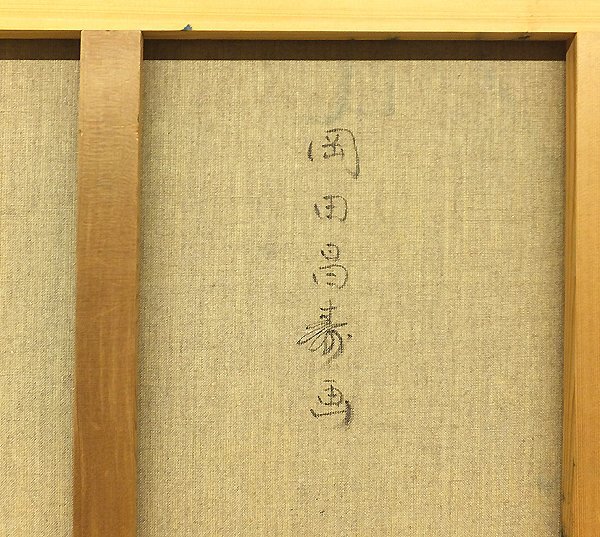 岡田昌寿画